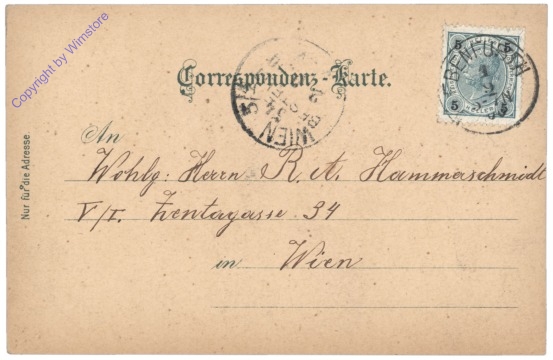 Copyright by Wimstore
Correspondenz-Karte.
5 5
5 5
EBENFURTH
WIEN
An
Wohlg: Herrn R. A. Hammerschmidt
V/I. Zentagasse 34
in Wien
Nur für die Adresse.